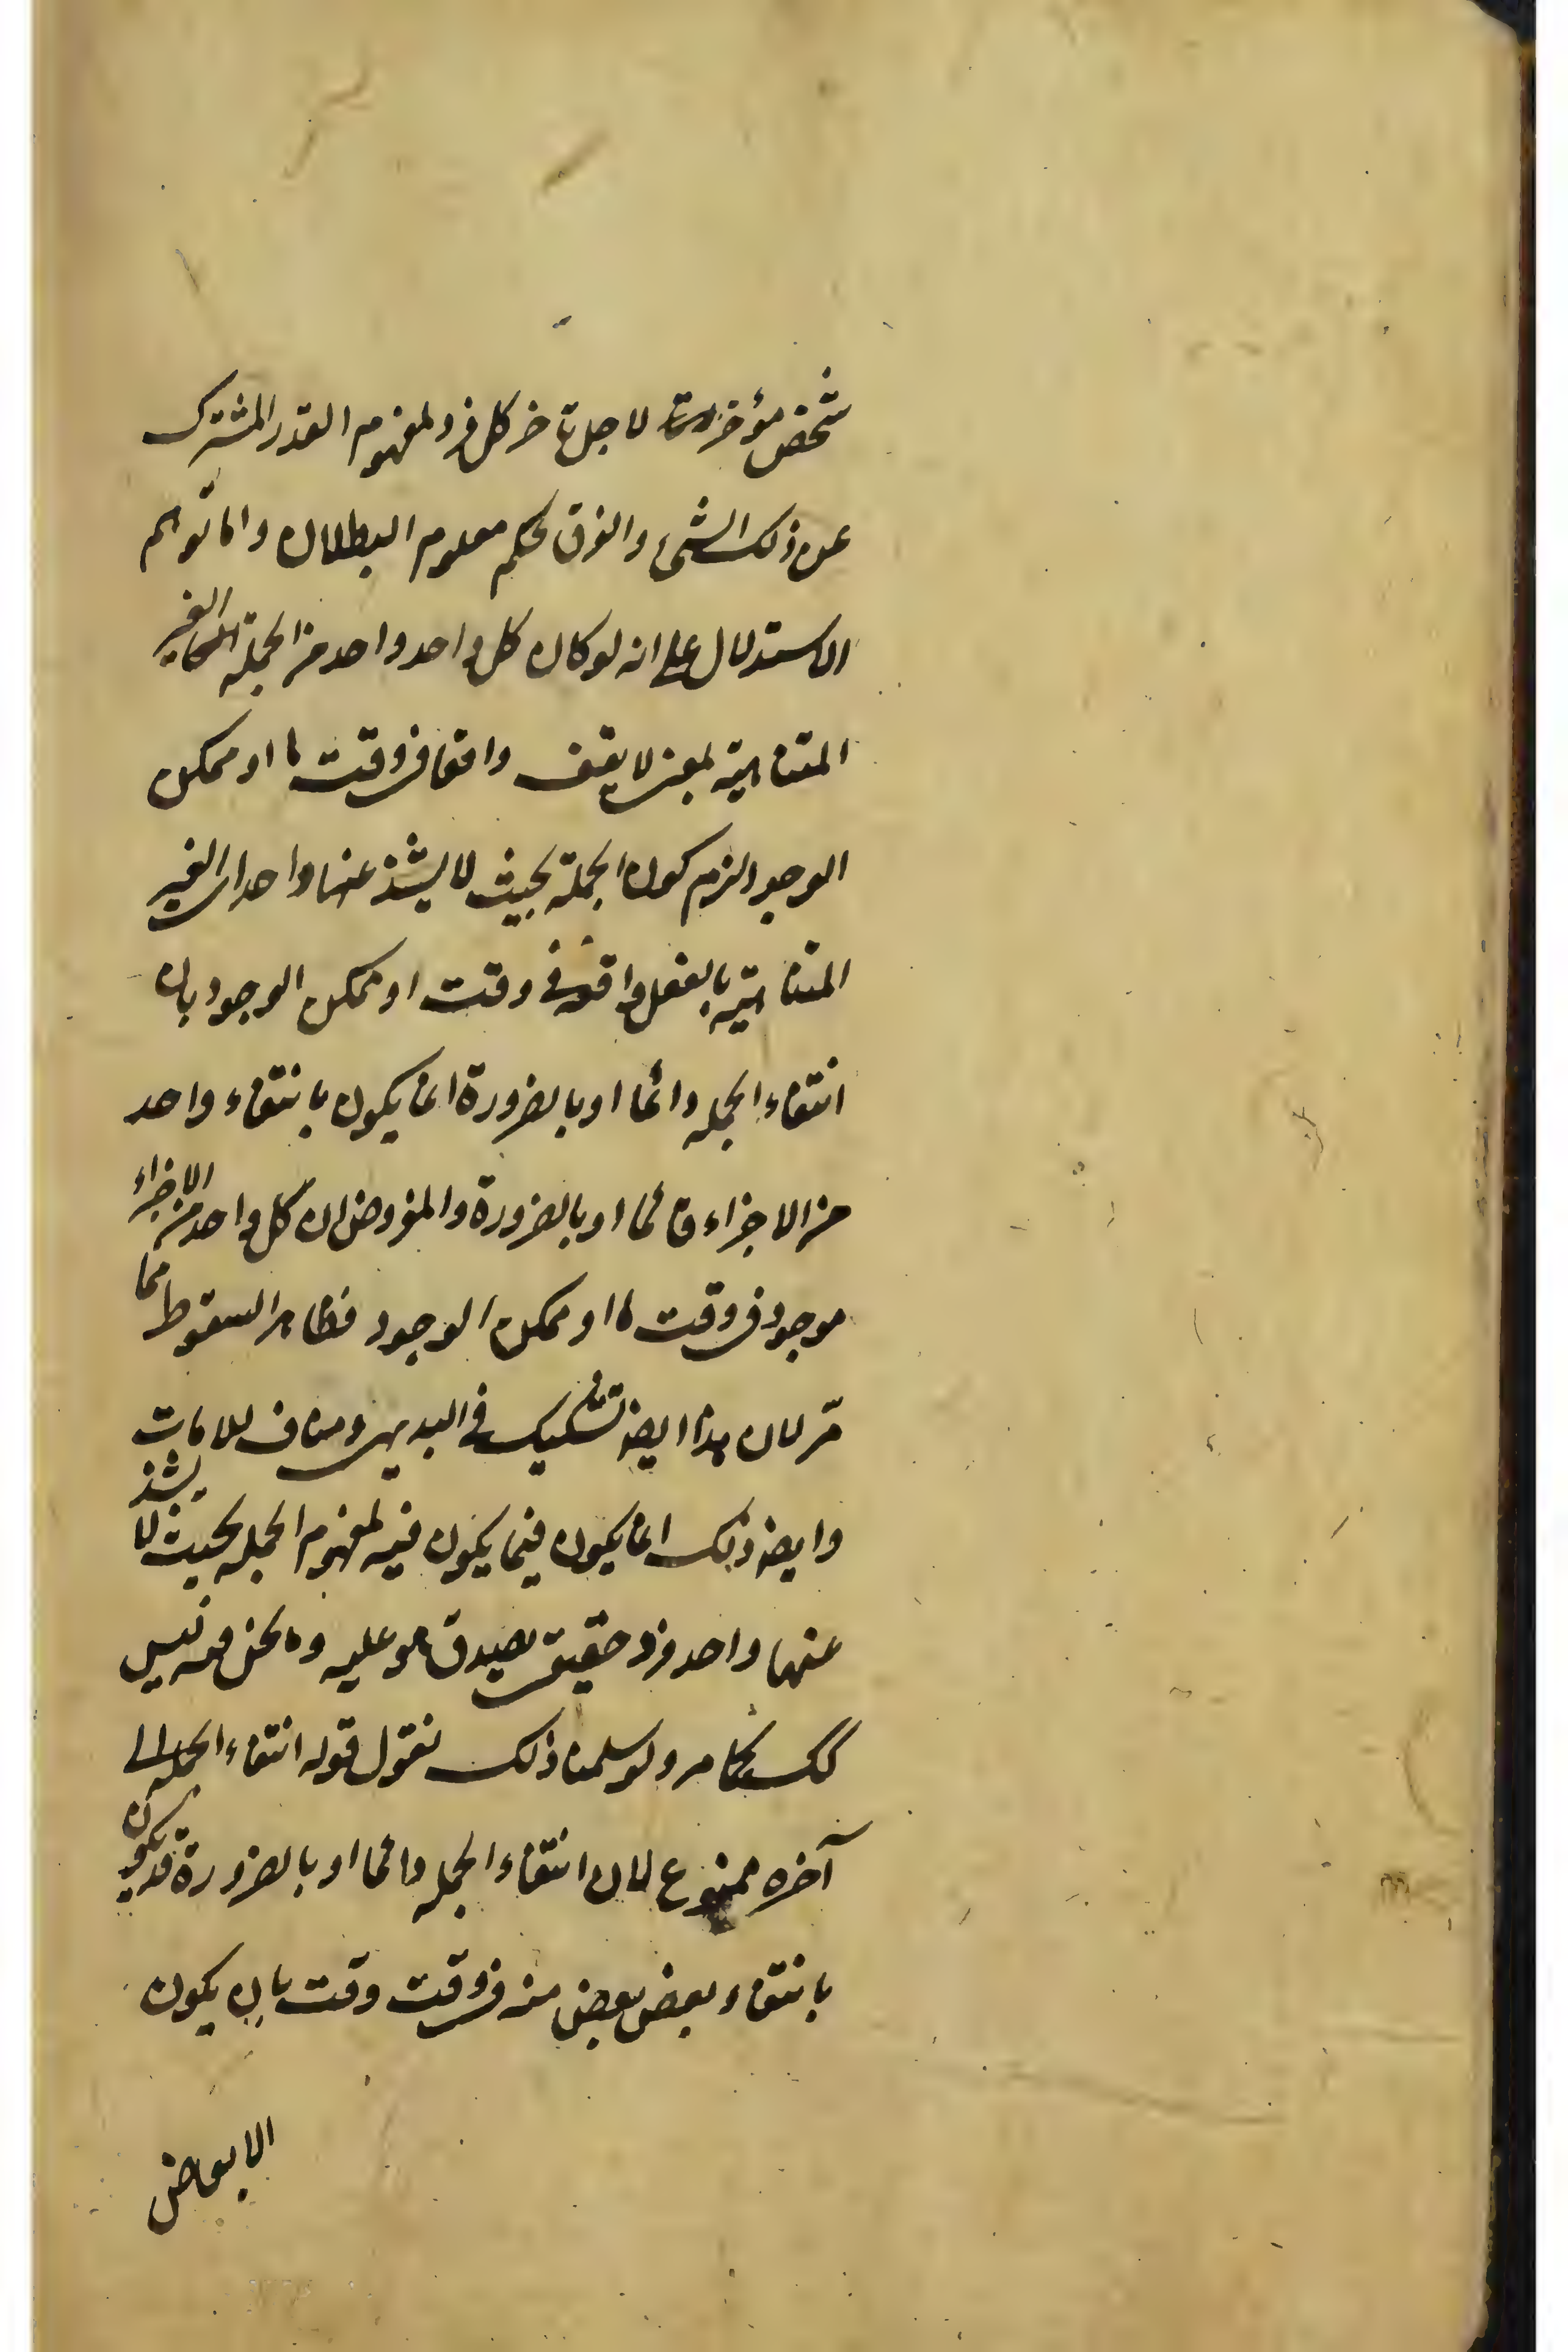 شخص مؤخر لاجل تاخر كل فرد لمفهوم القدر المشترك
عن ذلك الشيء والفرق تحكم معلوم البطلان واما توهم
الاستدلال على انه لو كان كل واحد واحد من الجملة الغير
المتناهية بمعنى لا يقف واقعا فى وقت ما او ممكن
الوجود لزم كون الجملة بحيث لا يشذ عنها واحد اى الغير
المتناهية بالفعل واقعة فى وقت او ممكن الوجود بان
انتفاء الجمله دائما او بالضرورة انما يكون بانتفاء واحد
من الاجزاء دائما او بالضرورة والمفروض ان كل واحد من الاجزاء
موجود فى وقت ما او ممكن الوجود فظاهر السقوط مما
مرّ لان هذا ايضا تشكيك فى البديهى ومناف
وايضا ذلك انما يكون فيما يكون فيه لمفهوم الجمله بحيث لا يشذ
عنها واحد فرد حقيقى يصدق هو عليه وما نحن فيه ليس
كك كما مر ولو سلمنا ذلك نقول قوله انتفاء الجمله الى
آخره ممنوع لان انتفاء الجمله دائما او بالضرورة قد يكون
بانتفاء بعض بعض منه فى وقت وقت بان يكون
الابعاض